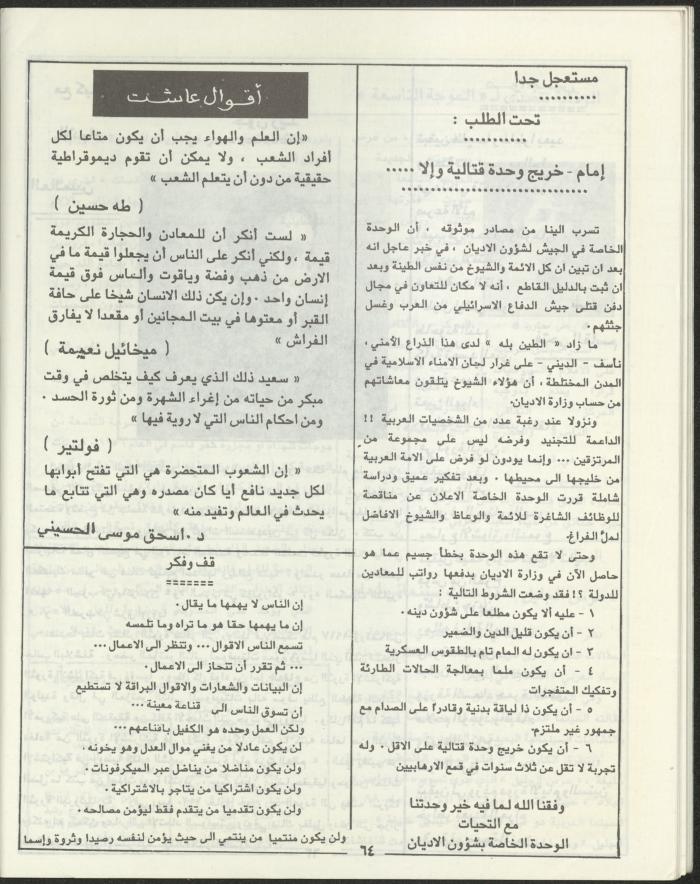 مستعجل جدا
..........
تحت الطلب :
...........
إمام - خريج وحدة قتالية وإلا .....
................................
تسرب الينا من مصادر موثوقه ، أن الوحدة
الخاصة في الجيش لشؤون الاديان ، في خبر عاجل انه
بعد ان تبين ان كل الائمة والشيوخ من نفس الطينة وبعد
ان ثبت بالدليل القاطع ، أنه لا مكان للتعاون في مجال
دفن قتلى جيش الدفاع الاسرائيلي من العرب وغسل
جثثهم.
ما زاد « الطين بله » لدى هذا الذراع الأمني،
نأسف - الديني - على غرار لجان الامناء الاسلامية في
المدن المختلطة ، أن هؤلاء الشيوخ يتلقون معاشاتهم
من حساب وزارة الاديان.
ونزولا عند رغبة عدد من الشخصيات العربية !!
الداعمة للتجنيد وفرضه ليس على مجموعة من
المرتزقين ... وإنما يودون لو فرض على الامة العربية
من خليجها الى محيطها . وبعد تفكير عميق ودراسة
شاملة قررت الوحدة الخاصة الاعلان عن مناقصة
للوظائف الشاغرة للائمة والوعاظ والشيوخ الافاضل
لملء الفراغ.
وحتى لا تقع هذه الوحدة بخطأ جسيم عما هو
حاصل الآن في وزارة الاديان بدفعها رواتب للمعادين
للدولة ؟! فقد وضعت الشروط التالية :
١ - عليه ألا يكون مطلعا على شؤون دينه .
٢ - أن يكون قليل الدين والضمير
٣ - ان يكون له المام تام بالطقوس العسكرية
٤ - أن يكون ملما بمعالجة الحالات الطارئة
وتفكيك المتفجرات
٥ - أن يكون ذا لياقة بدنية وقادرا على الصدام مع
جمهور غير ملتزم.
٦ - أن يكون خريج وحدة قتالية على الاقل . وله
تجربة لا تقل عن ثلاث سنوات في قمع الارهابيين
وفقنا الله لما فيه خير وحدتنا
مع التحيات
الوحدة الخاصة بشؤون الاديان
أقوال عاشت
«إن العلم والهواء يجب أن يكون متاعا لكل
أفراد الشعب ، ولا يمكن أن تقوم ديموقراطية
حقيقية من دون أن يتعلم الشعب »
( طه حسين )
« لست أنكر أن للمعادن والحجارة الكريمة
قيمة ، ولكني أنكر على الناس أن يجعلوا قيمة ما في
الارض من ذهب وفضة وياقوت وألماس فوق قيمة
إنسان واحد . وإن يكن ذلك الانسان شيخا على حافة
القبر أو معتوها في بيت المجانين أو مقعدا لا يفارق
الفراش »
( ميخائيل نعيمة )
« سعيد ذلك الذي يعرف كيف يتخلص في وقت
مبكر من حياته من إغراء الشهرة ومن ثورة الحسد .
ومن احكام الناس التي لا روية فيها »
( فولتير )
« إن الشعوب المتحضرة هي التي تفتح أبوابها
لكل جديد نافع أيا كان مصدره وهي التي تتابع ما
يحدث في العالم وتفيد منه »
د. اسحق موسى الحسيني
قف وفكر
=======
إن الناس لا يهمها ما يقال.
إن ما يهمها حقا هو ما تراه وما تلمسه
تسمع الناس الاقوال ... وتنظر الى الاعمال ...
... ثم تقرر أن تنحاز الى الاعمال .
إن البيانات والشعارات والاقوال البراقة لا تستطيع
أن تسوق الناس الى قناعة معينة ...
ولكن العمل وحده هو الكفيل باقناعهم ...
لن يكون عادلا من يغني موال العدل وهو يخونه .
ولن يكون مناضلا من يناضل عبر الميكرفونات .
ولن يكون اشتراكيا من يتاجر بالاشتراكية.
ولن يكون تقدميا من يتقدم فقط ليؤمن مصالحه .
ولن يكون منتميا من ينتمي الى حيث يؤمن لنفسه رصيدا وثروة وإسما
٦٤